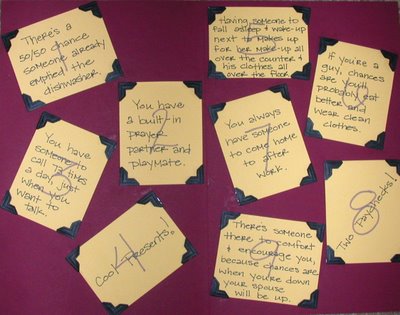 There's a
50/50 chance
someone already
emptied the
dishwasher.
1
You have
a built-in
prayer
partner and
playmate.
2
You have
someone to
call 72 times
a day, just
when you
want to
talk.
3
Cool Presents!
4
Having someone to
fall asleep & wake-up
next to makes up
for her make-up all
over the counter &
his clothes all
over the floor.
If you're a
guy, chances
are you'll
probably eat
better and
wear clean
clothes.
6
You always
have someone
to come home
to after
work.
7
Two Paychecks!
8
There's someone
there to comfort
& encourage you,
because chances are
when you're down
your spouse
will be up.
9